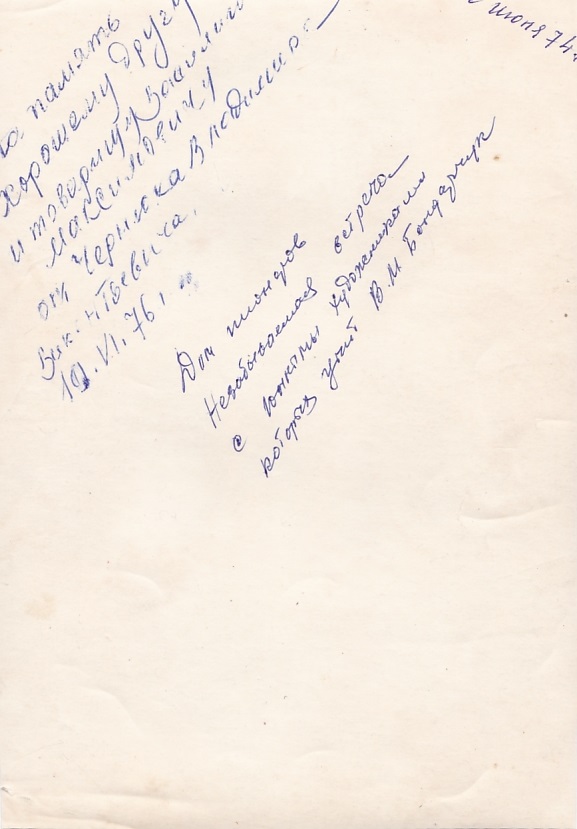 на память
хорошему другу
и товарищу Василию
Максимовичу
от Чернюка Владимира
10.VI.76 г.
июня 74
Дом пионеров
Незабываемая встреча
с юными художниками
которых учит В.М Бондарчук